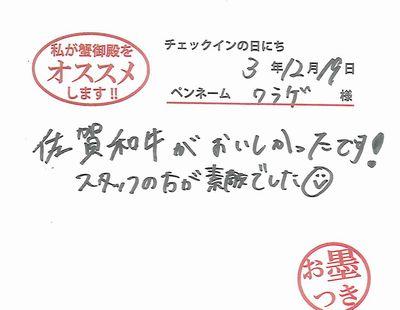 私が蟹御殿を
オススメ
します!!
チェックインの日にち
3年12月19日
ペンネーム クラゲ 様
佐賀和牛がおいしかったです!
スタッフの方が素敵でした
お墨
つき